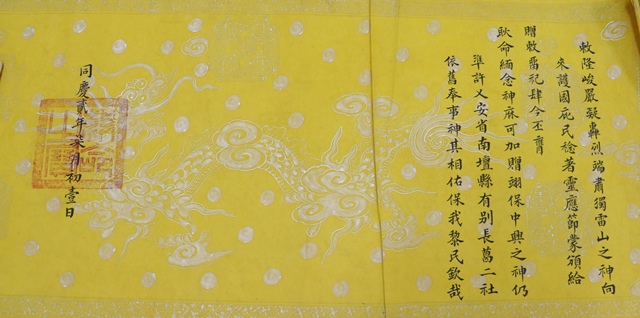 敕隆峻嚴凝轟烈端肅獨雷山之神向
來護國庇民稔著靈應節蒙頒給
贈敕畱祀肆今丕膺
耿命緬念神庥可加贈翊保中興之神仍
準許乂安省南壇縣有别長葛二社
依舊奉事神其相佑保我黎民欽哉
同慶貳年柒月初壹日